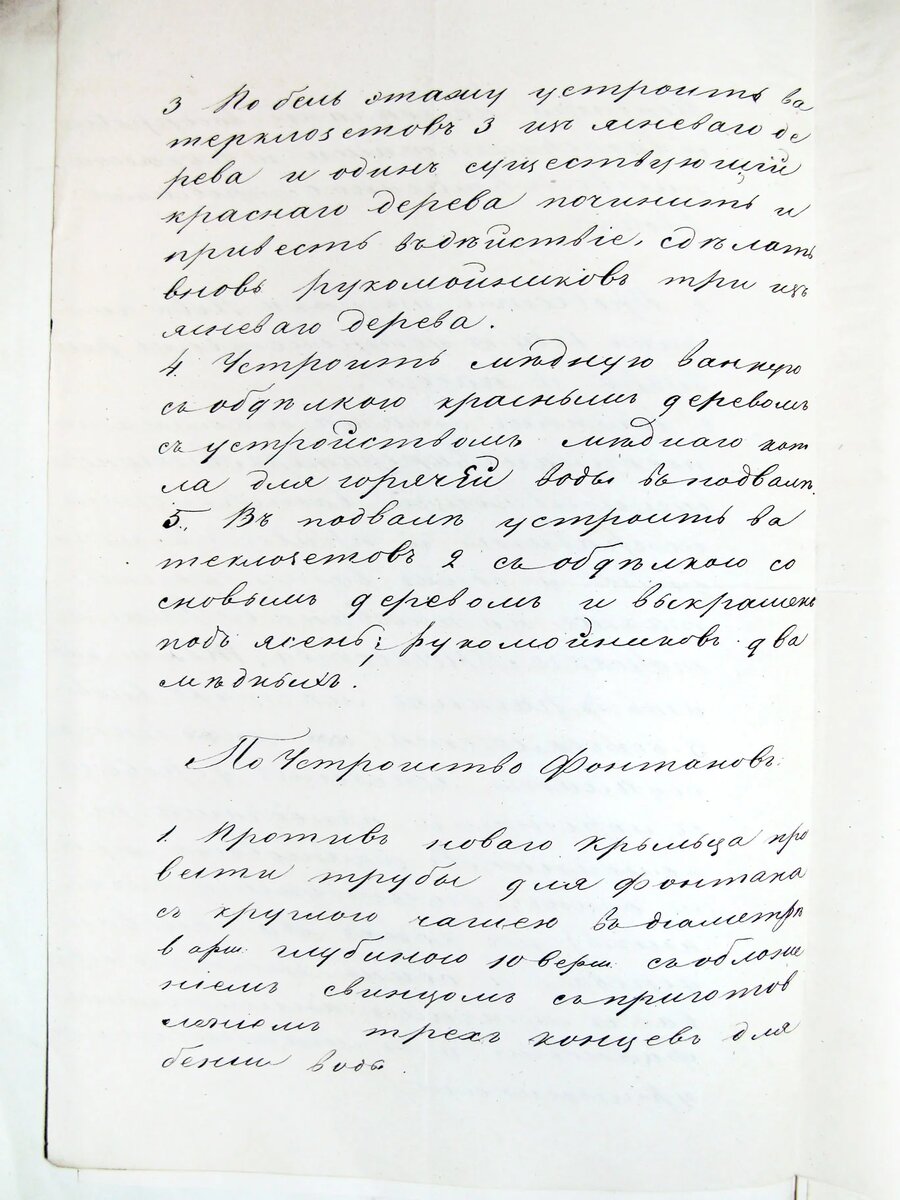 3 По бель этажу устроить ва
терклозетовъ 3 изъ ясневаго де
рева и одинъ существующій
краснаго дерева починить и
привесть въ дѣйствіе, сдѣлать
вновь рукомойниковъ три изъ
ясневаго дерева.
4. Устроить мѣдную ванную
съ обдѣлкою краснымъ деревомъ
съ устройствомъ мѣднаго кот
ла для горячей воды въ подвалѣ.
5., Въ подвалѣ устроить ва
теклозетовъ 2 съ обдѣлкою со
сновымъ деревомъ и выкрашень
подъ ясень; рукомойниковъ два
мѣдныхъ.
По Устроиство Фонтановъ.
1. Противъ новаго крыльца про
вести трубы для фонтана
съ круглою чашею въ діаметрѣ
арш. глубиною 10 верш. съ обложе
ніемъ свинцомъ съ приготов
леніемъ трехъ концевъ для
воды.